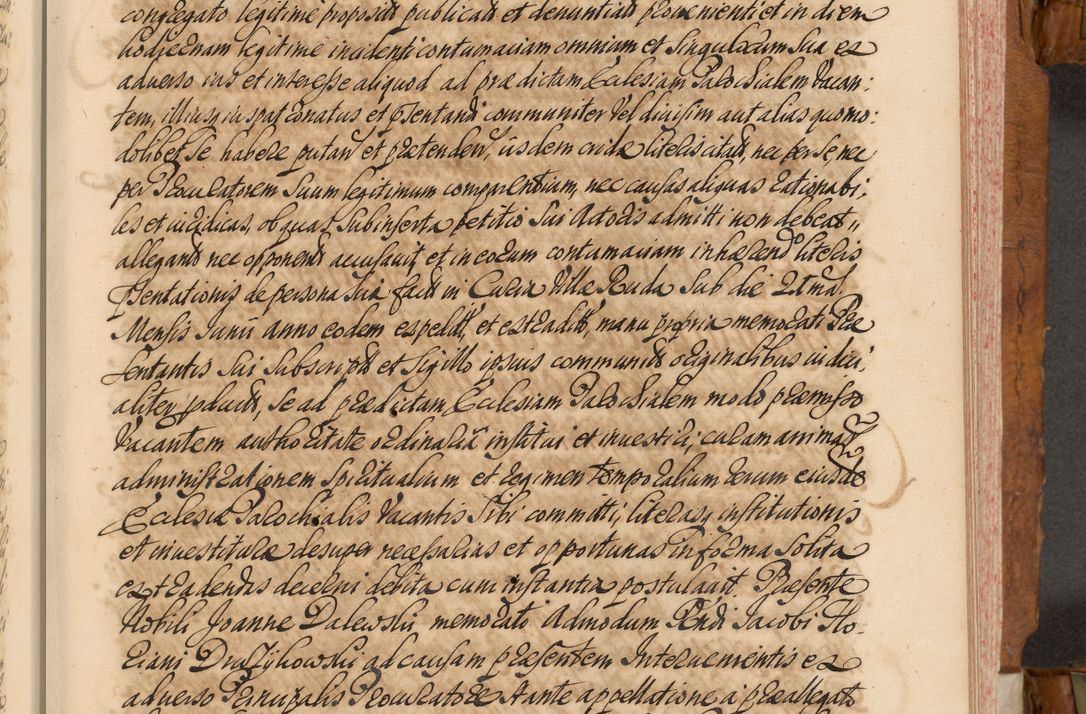 congregato legitime proposit publicat et denuntiat provenienti et in diem
hodiernam legitime incidenti contumaciam omnium et singulorum sua ex
adverso ius et interesse aliquod ad prædictam Ecclesiam Parochialem vacan:
tem, illiusq iuspatronatus et Psentandi communiter vel divisim aut alias quomo:
dolibet se habere putan et prætenden, iisdem cridæ literis citat, nec per se, nec
per Procuratorem suum legitimum comparentium, nec causas aliquas rationabi:
les et iuridicas, ob quas subinserta petitio sui Actoris admitti non debeat,,
allegand nec opponend accusavit et in eorum contumaciam inhærend literis
Psentationis de persona sua fact in Curia Villæ Ruda sub die 21ma
Mensis Junii anno eodem expedit, et extradit, manu propria memorati Præ
sentantis sui subscript et Sigillo ipsius communit originalibus iudici,
aliter pduct, se ad prædictam Ecclesiam Parochialem modo præmisso
vacantem authoritate ordinaria institui et investiri; curam animar
administrationem spiritualium et regimen temporalium rerum eiusde
Ecclesiæ Parochialis vacantis sibi committi; literasq institutionis
et investituræ desuper necessarias et opportunas in forma solita
extradendas decerni debita cum instantia postulavit. Præsente
Nobili Joanne Dalewski memorato Admodum Rndi Jacobi Flo-
riani Druzykowski ad causam præsentem Intervenientis ex
adverso Principalis Procuratore stante appellatione a præallegata